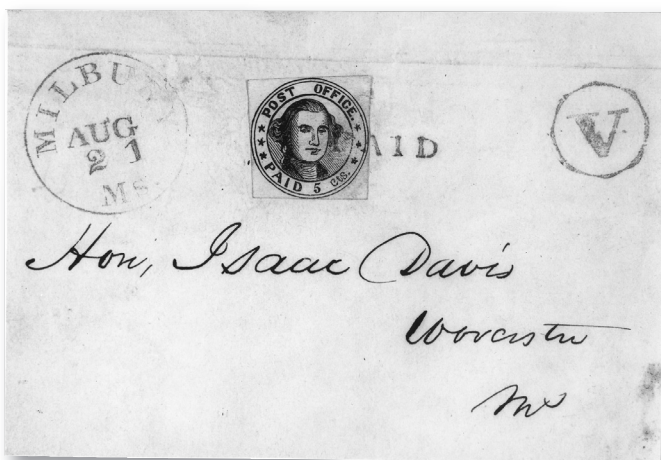 MILBU
AUG
21
MS
POST OFFICE.
PAID 5 cts.
AID
V
Hon, Isaac Davis
Worcester
Ms